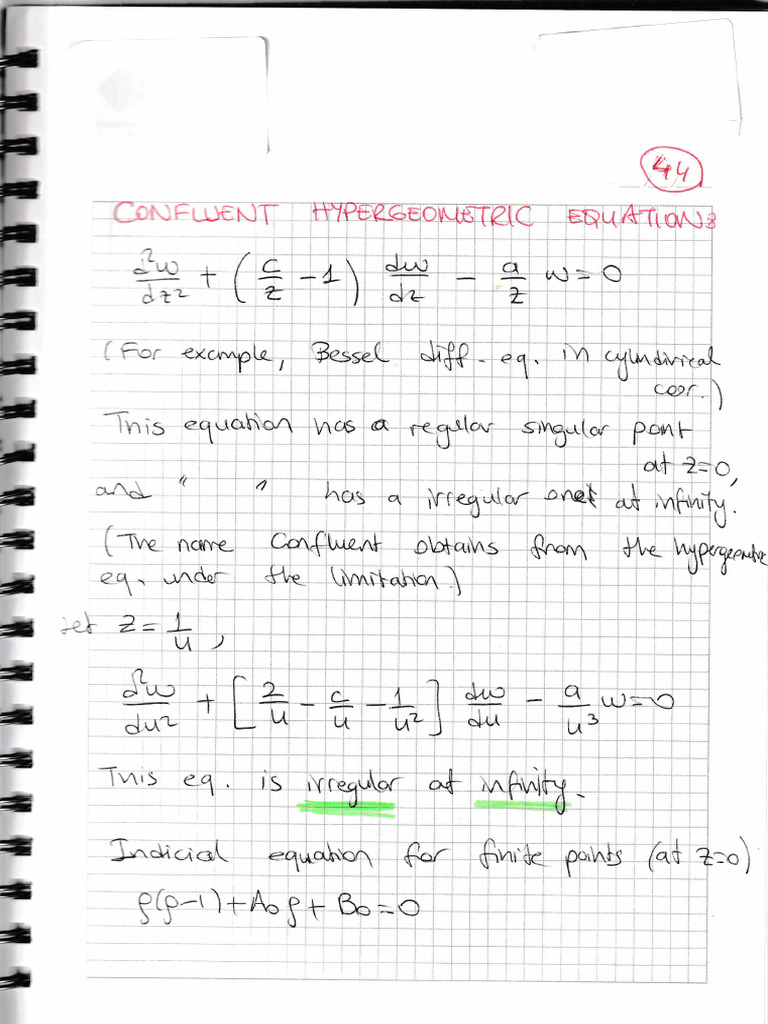 44
CONFLUENT HYPERGEOMETRIC EQUATION:
d²w/dz² + (c/z - 1) dw/dz - a/z w = 0
(For example, Bessel diff. eq. in cylindirical
coor.)
This equation has a regular singular point
at z=0,
and " " has a irregular one at infinity.
(The name Confluent obtains from the hypergeometric
eq. under the limitation.)
Let z = 1/u,
d²w/du² + [2/u - c/u - 1/u²] dw/du - a/u³ w = 0
This eq. is irregular at infinity.
Indicial equation for finite points (at z=0)
ρ(ρ-1) + A₀ρ + B₀ = 0